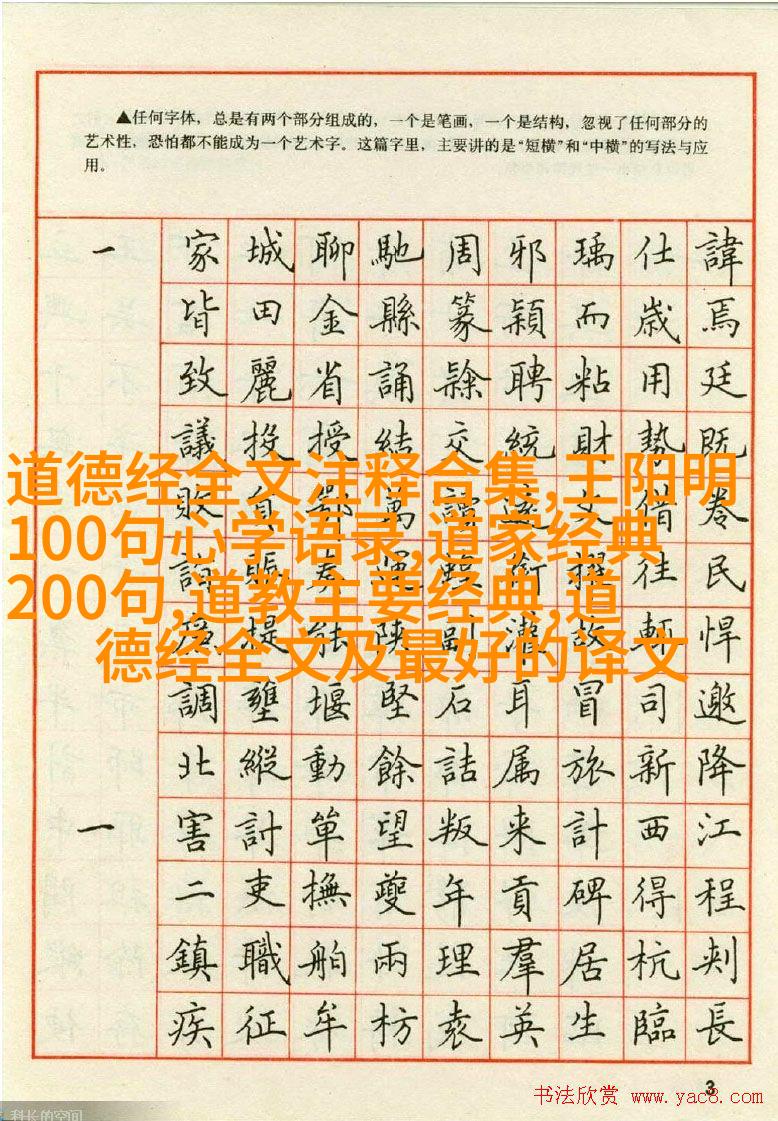 ▲任何字体，总是有两个部分组成的，一个是笔画，一个是结构，忽视了任何部分的
艺术性，恐怕都不能成为一个艺术字。这篇字里，主要讲的是“短横”和“中横”的写法与应
用。
一 家 城 聊 馳 周 邪 瑀 仕 諱
皆 田 金 縣 篆 穎 而 歲 焉
致 麗 省 誦 隸 聘 粘 用 廷
議 投 授 結 交 統 財 勢 既
道德经全文注释合集,王阳明
敗 負 萬 文 借 卷
100句心学语录,道家经典
往 民
200句,道教主要经典,道
提 能 陝 副 灌 故 軒 悍
德经全文及最好的译文
調 壅 堰 堅 石 耳 冒 司 邀
北 縱 動 餘 詰 属 旅 新 降
一 害 討 単 望 叛 来 計 西 江
二 吏 撫 夔 年 貢 碑 得 程
鎮 職 舶 兩 理 羣 居 杭 刺
疾 征 牟 枋 袁 英 生 臨 長
3
书法欣赏 www.yac8.com
科长的空间